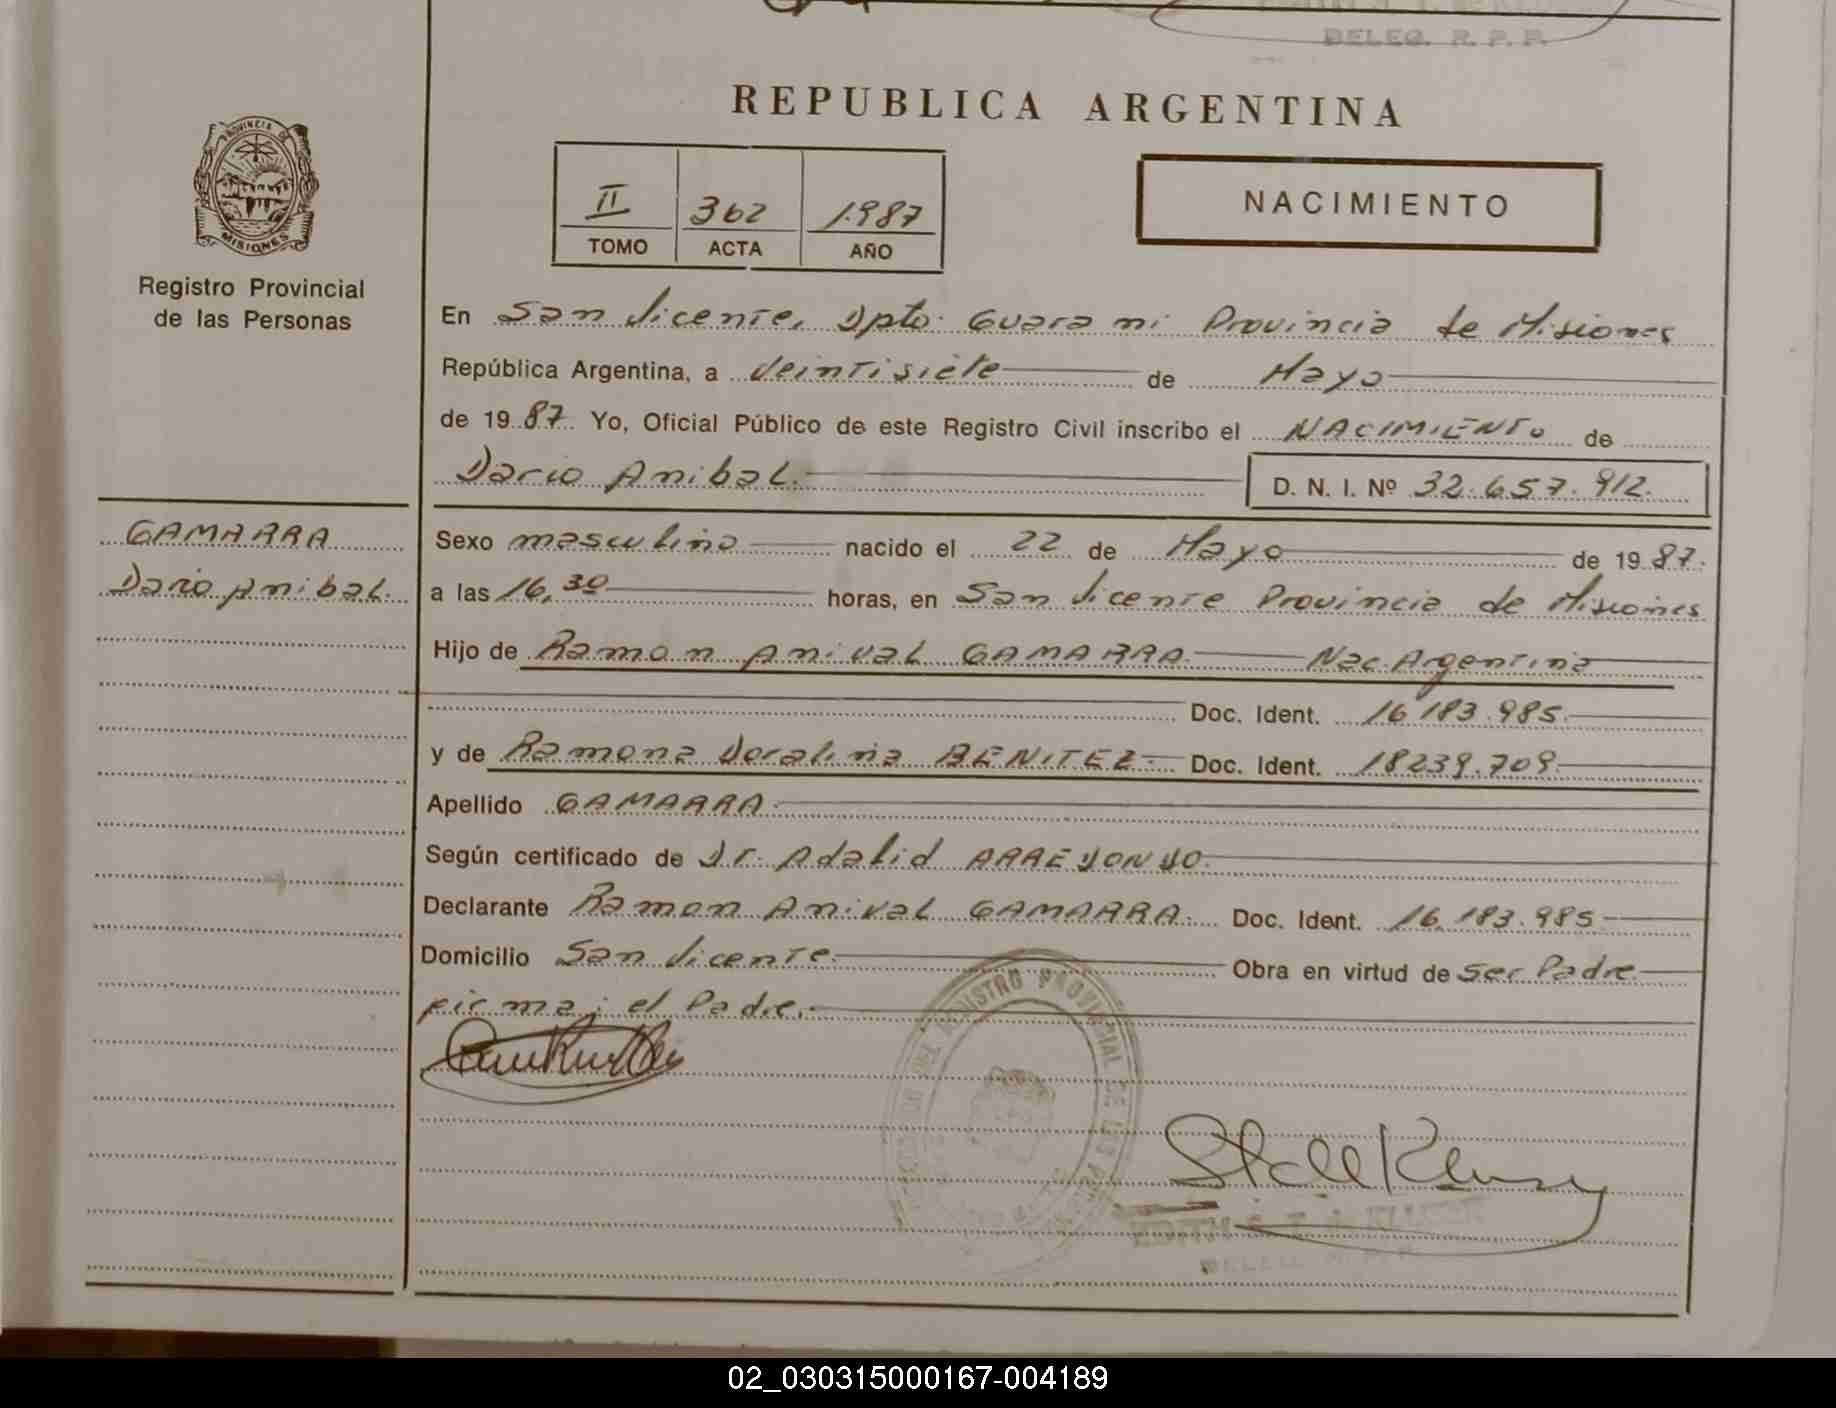 DELEG. R. P. P.
REPUBLICA ARGENTINA
PROVINCIA DE
MISIONES
Registro Provincial
de las Personas
II 362 1987
TOMO ACTA AÑO
NACIMIENTO
En San Vicente, Dpto. Guarani Provincia de Misiones
República Argentina, a Veintisiete de Mayo
de 1987 Yo, Oficial Público de este Registro Civil inscribo el NACIMIENTO de
Dario Anibal. D. N. I. Nº 32.657.912.
GAMARRA
Dario Anibal.
Sexo masculino nacido el 22 de Mayo de 1987.
a las 16,30 horas, en San Vicente Provincia de Misiones
Hijo de Ramon Anival GAMARRA. Nac. Argentina
Doc. Ident. 16.183.985.
y de Ramona Doralina BENITEZ. Doc. Ident. 18239.709.
Apellido GAMARRA.
Según certificado de Dr. Adalid ARREDONDO.
Declarante Ramon Anival GAMARRA. Doc. Ident. 16.183.985
Domicilio San Vicente. Obra en virtud de Ser Padre.
firma: el Padre.
REGISTRO PROVINCIAL DE LAS
EDITH S. T. de
DELEG. R. P. P.
02_030315000167-004189